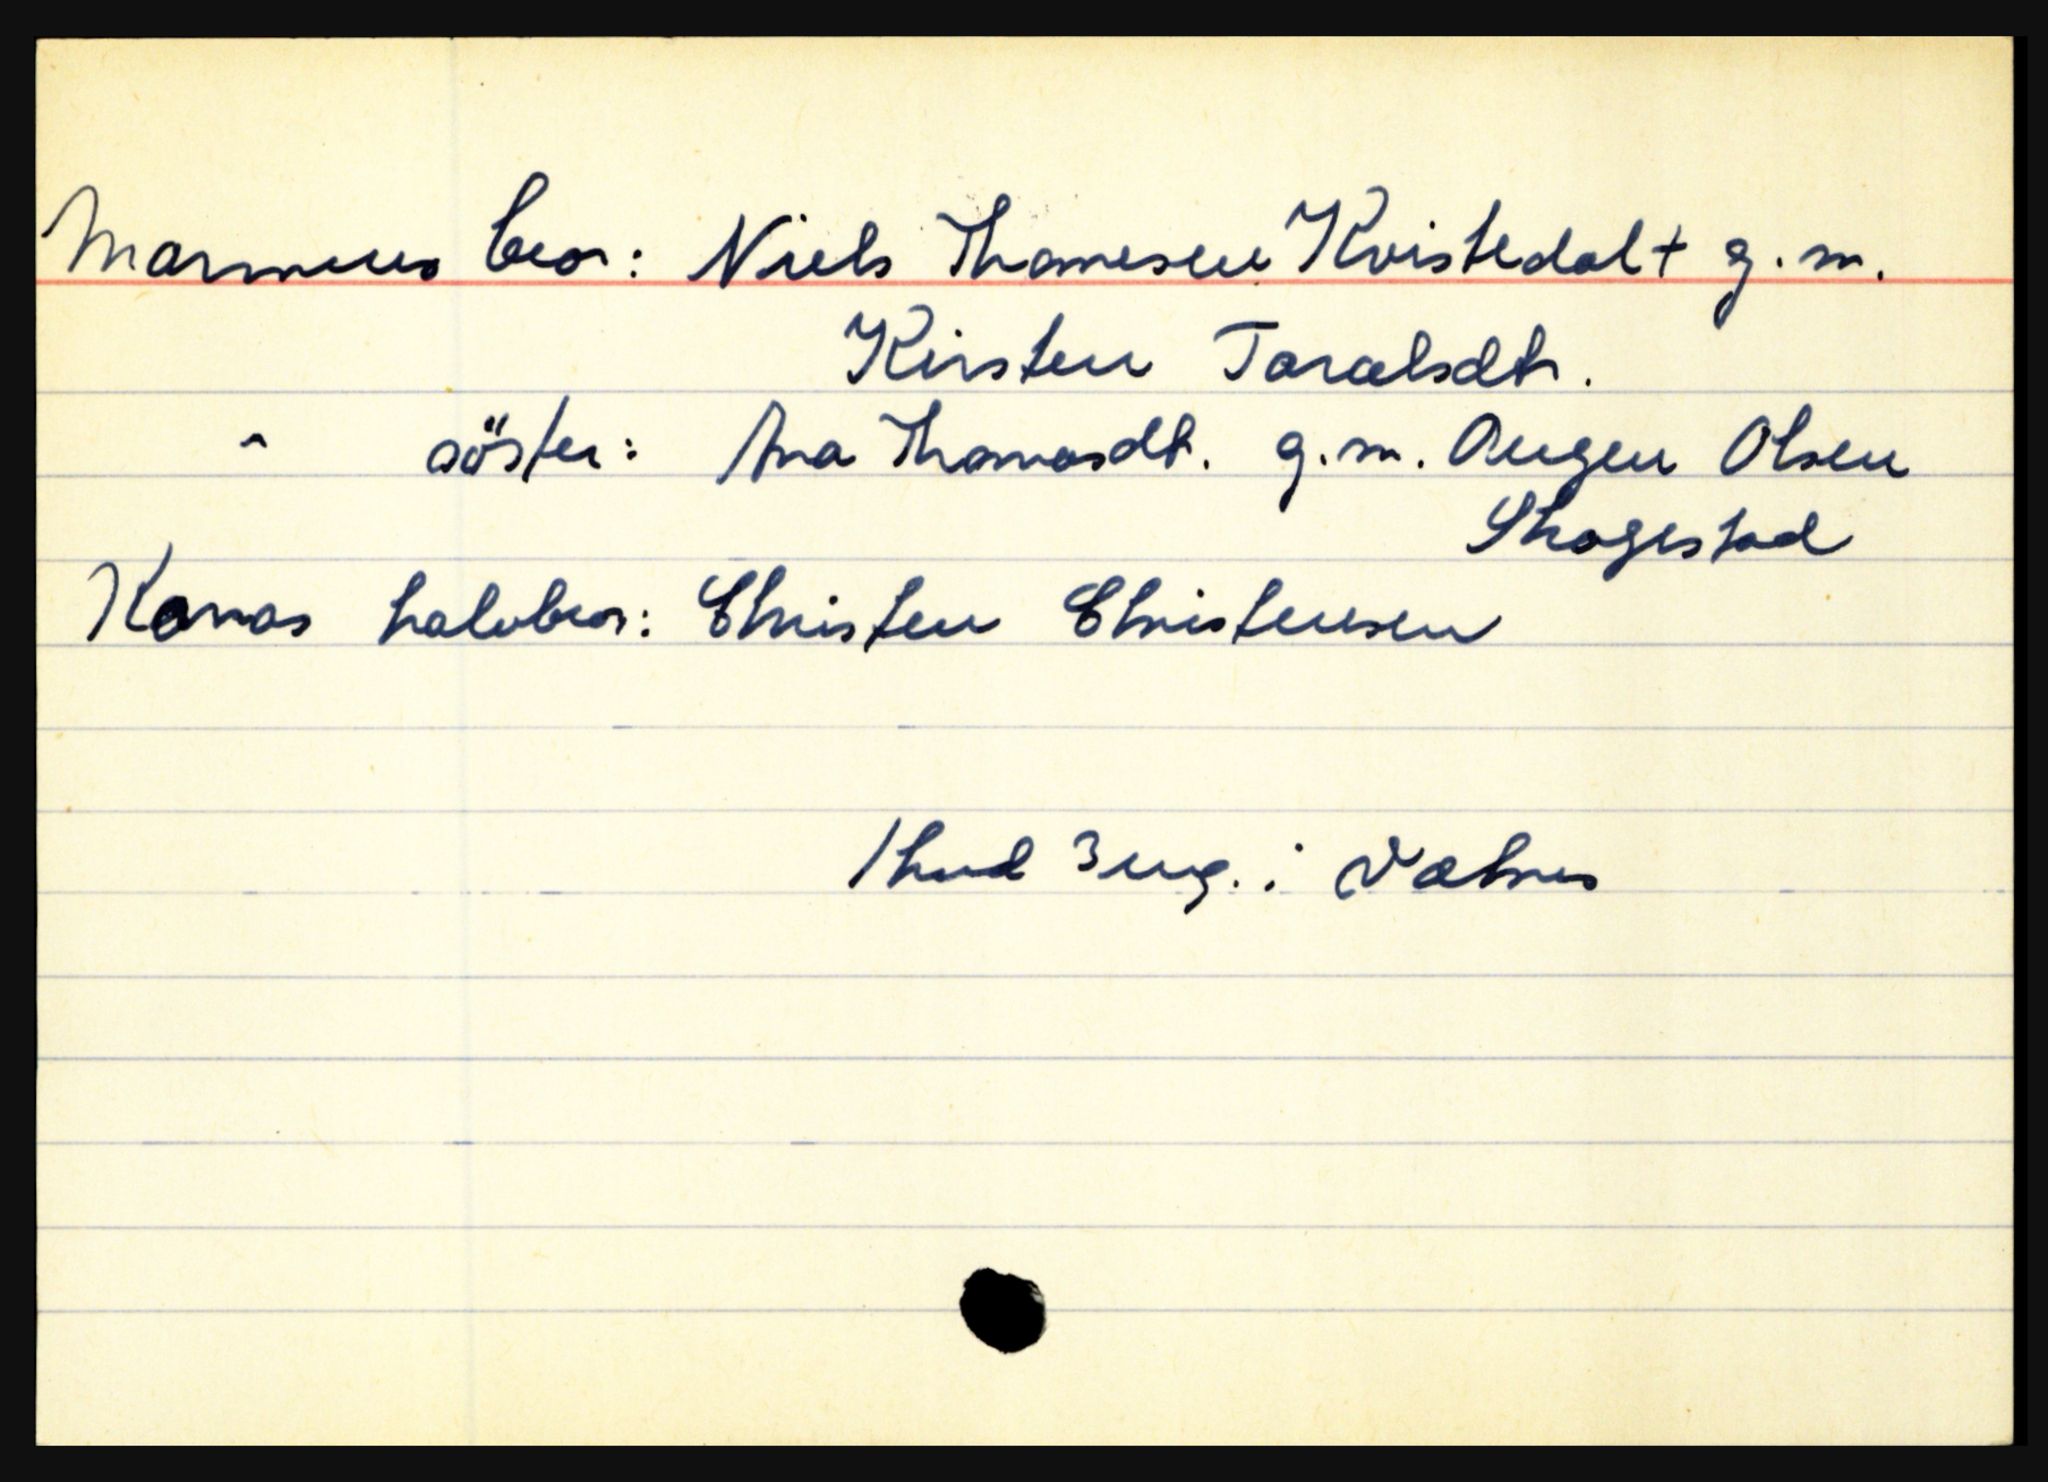 Mannens bror: Niels Thomesen Kvistedal + g.m.
Kirsten Taralsdtr.
" söster: Ana Thomasdt. g.m. Augen Olsen
Skogestad
Konas halvbror: Christen Christensen
1 hud 3 eng. i Valnes